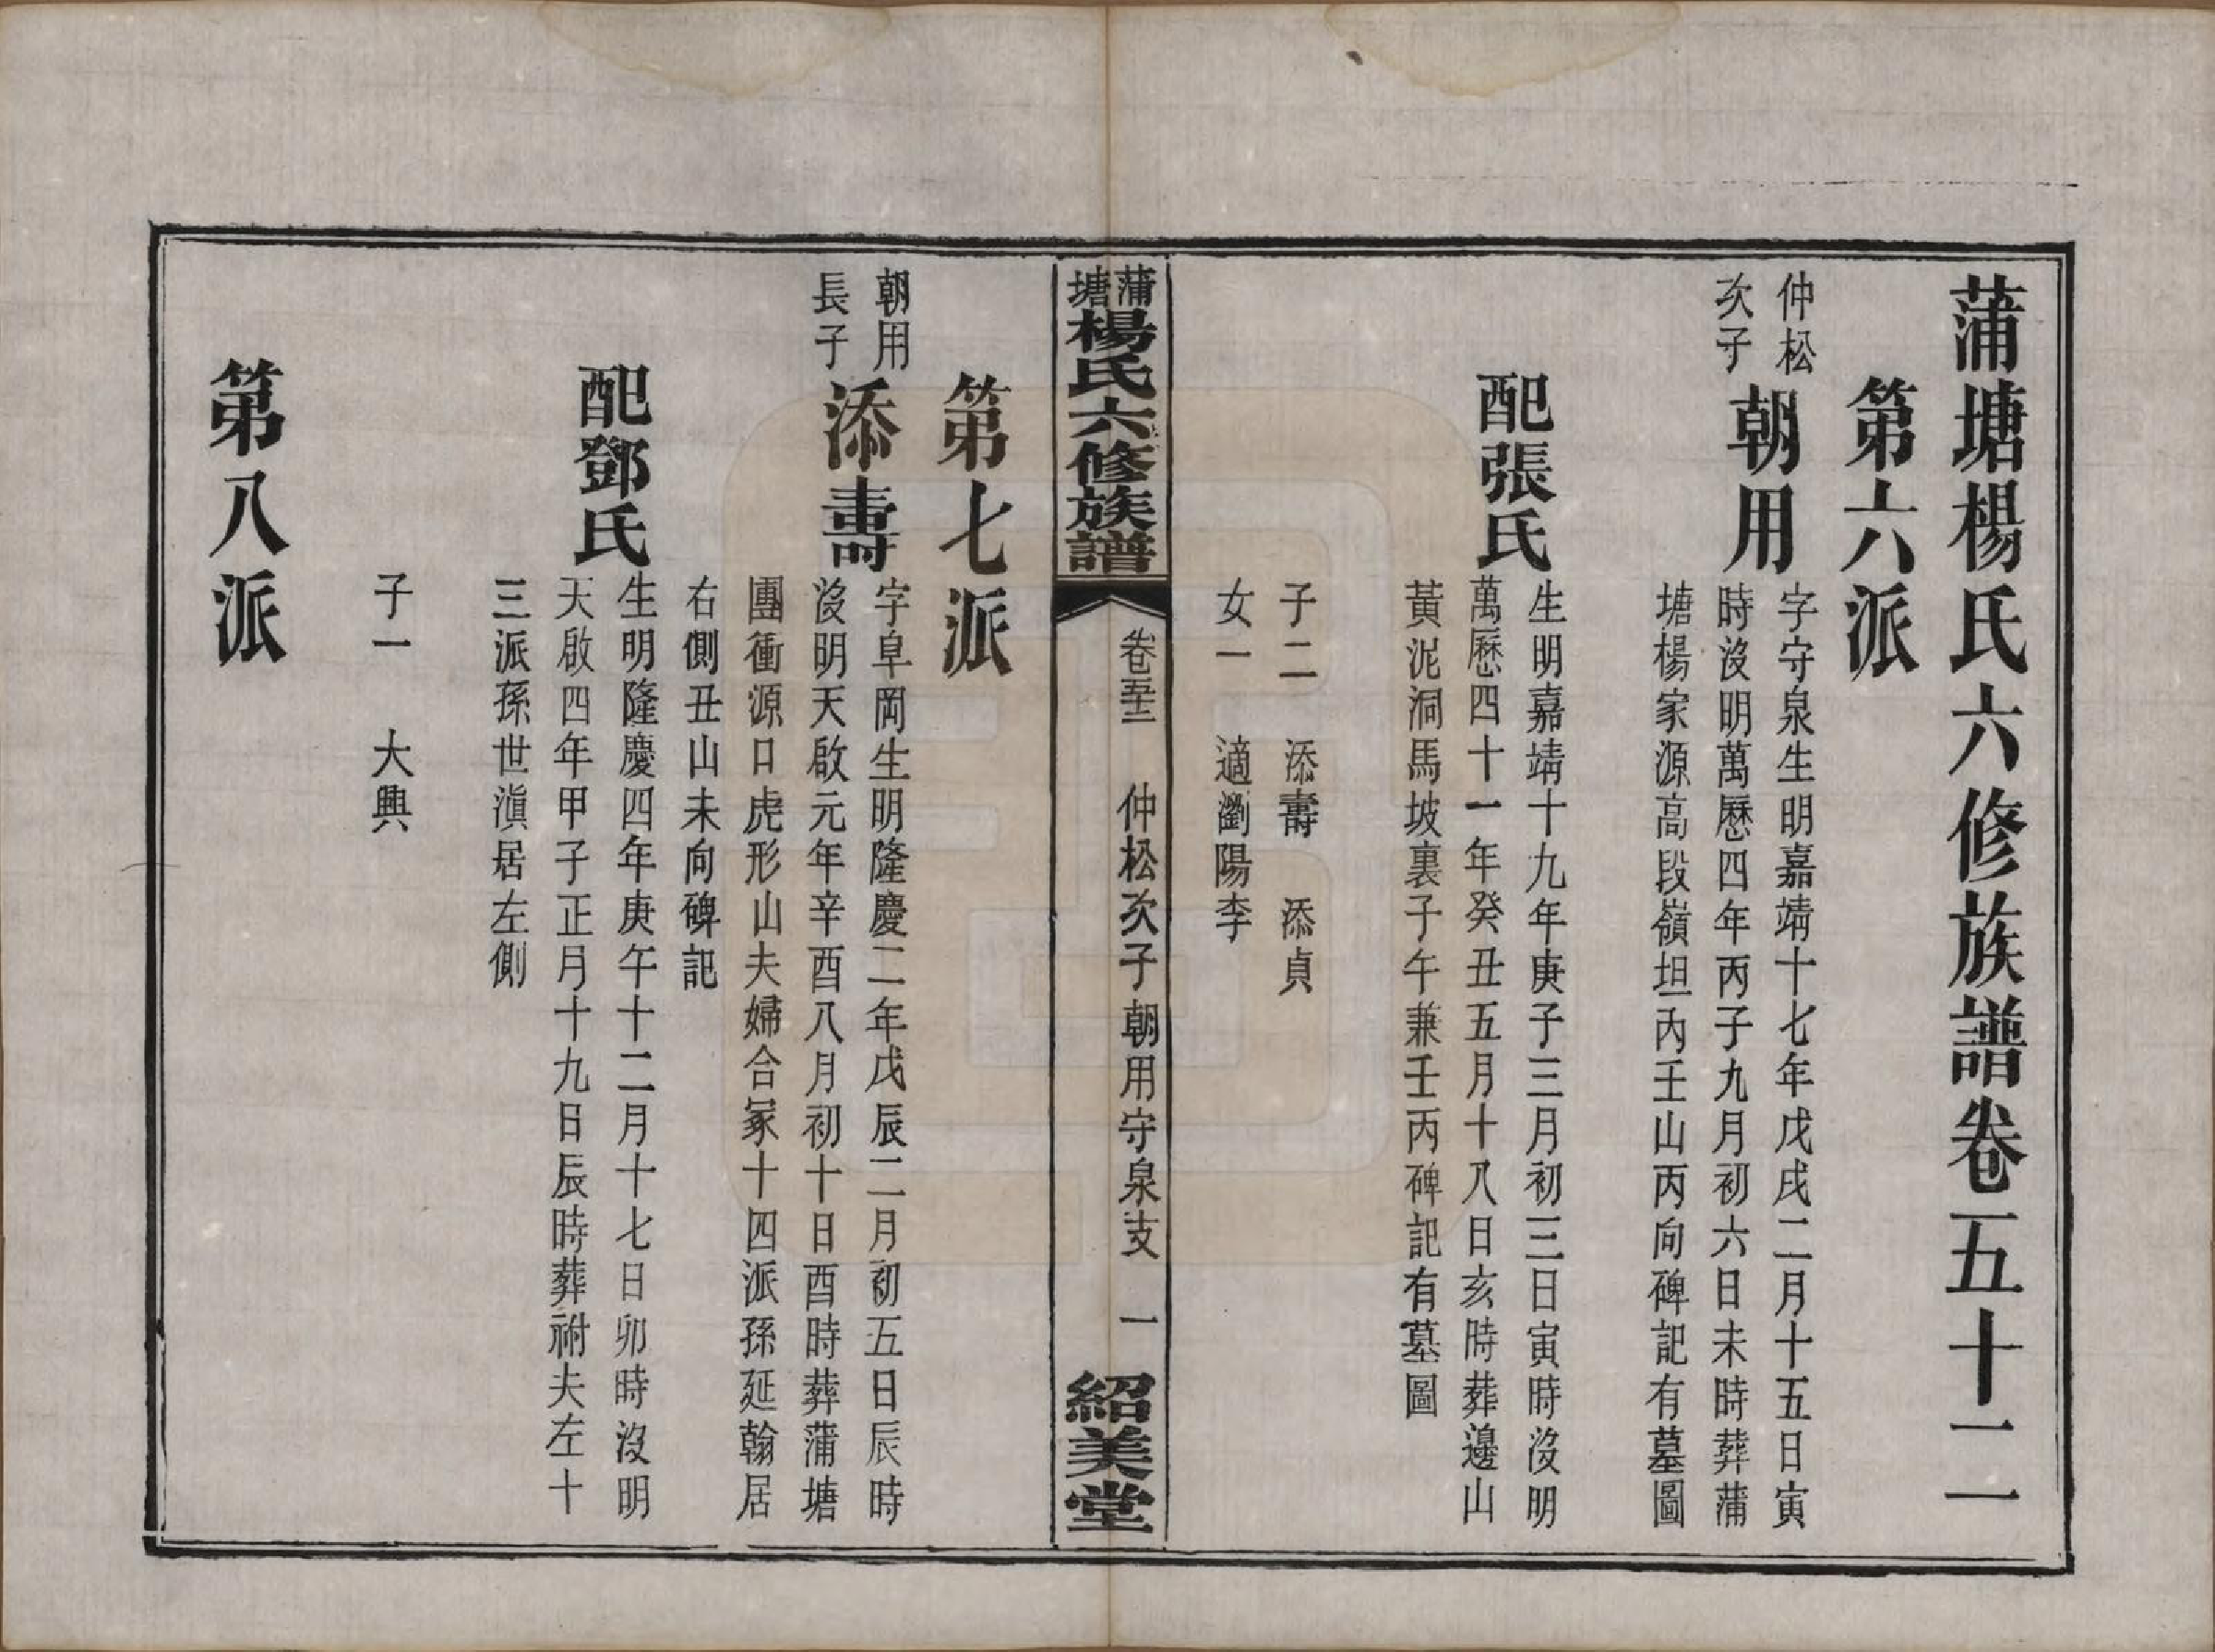 蒲塘楊氏六修族譜卷五十二
第六派
仲松
次子
朝用
字守泉生明嘉靖十七年戊戌二月十五日寅
時沒明萬歷四年丙子九月初六日未時葬蒲
塘楊家源高段嶺坦內壬山丙向碑記有墓圖
配張氏
生明嘉靖十九年庚子三月初三日寅時沒明
萬歷四十一年癸丑五月十八日亥時葬邊山
黃泥洞馬坡裏子午兼壬丙碑記有墓圖
子二　添壽　添貞
女一　適瀏陽李
蒲塘楊氏六修族譜　卷五十二　仲松次子朝用守泉支　一　紹美堂
第七派
朝用
長子
添壽
字阜岡生明隆慶二年戊辰二月初五日辰時
沒明天啟元年辛酉八月初十日酉時葬蒲塘
團衝源口虎形山夫婦合冢十四派孫延翰居
右側丑山未向碑記
配鄧氏
生明隆慶四年庚午十二月十七日卯時沒明
天啟四年甲子正月十九日辰時葬祔夫左十
三派孫世滇居左側
子一　大興
第八派